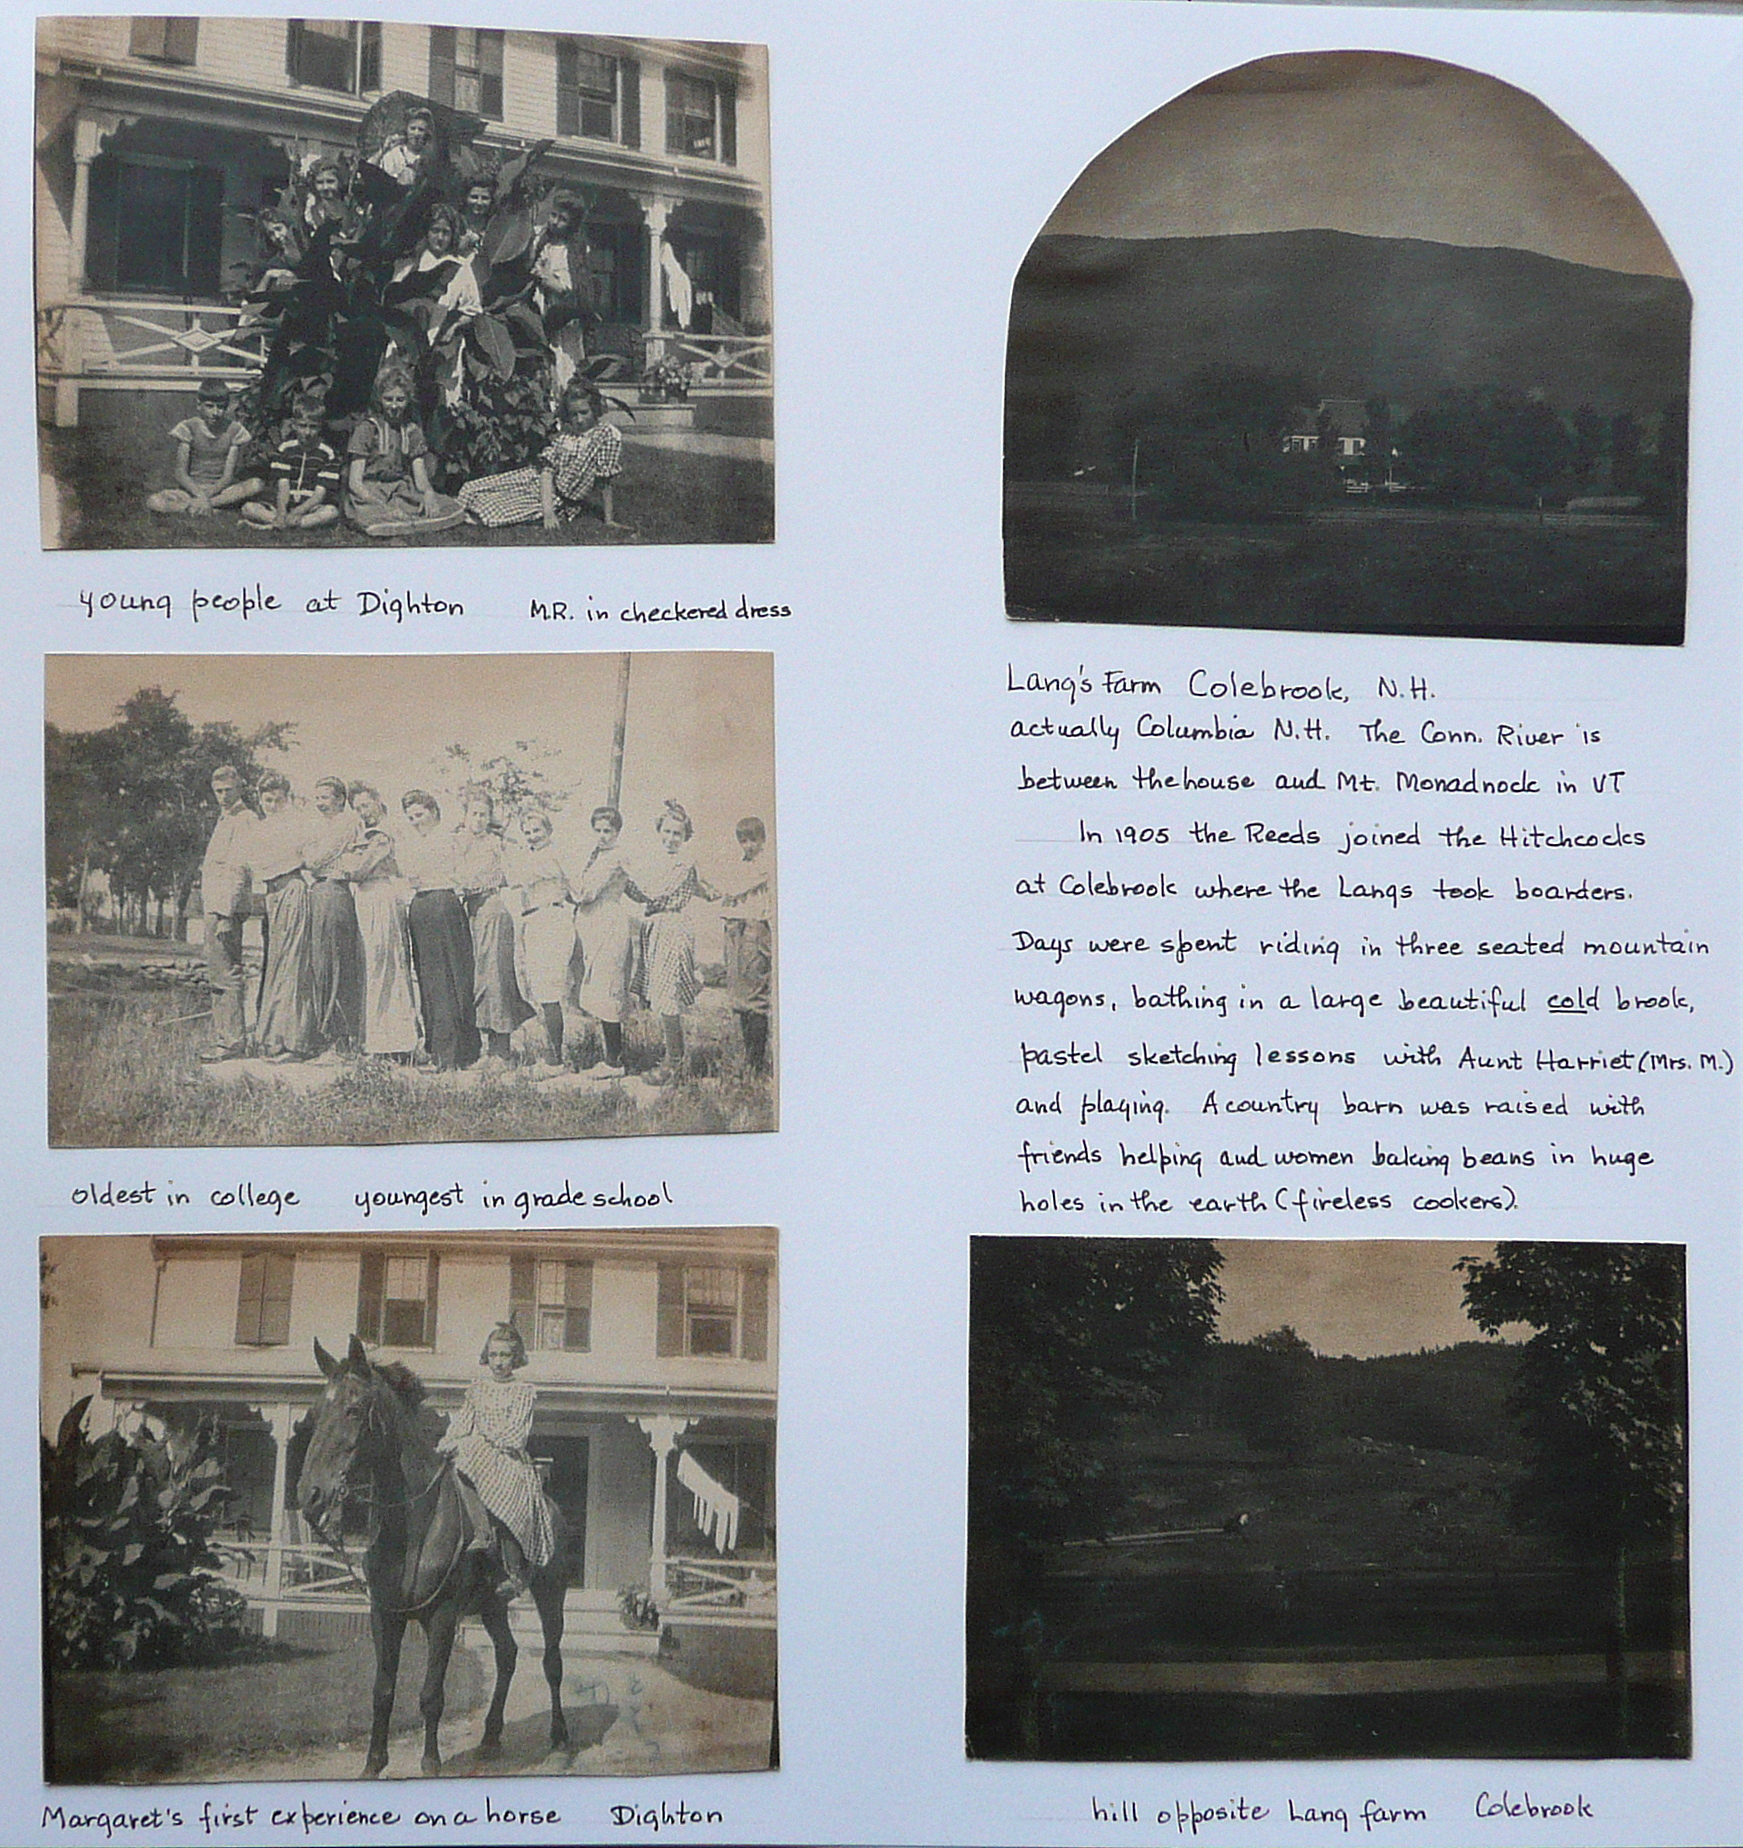 young people at Dighton M.R. in checkered dress
oldest in college youngest in grade school
Margaret's first experience on a horse Dighton
Lang's Farm Colebrook, N.H.
actually Columbia N.H. The Conn. River is
between the house and Mt. Monadnock in VT
In 1905 the Reeds joined the Hitchcocks
at Colebrook where the Langs took boarders.
Days were spent riding in three seated mountain
wagons, bathing in a large beautiful cold brook,
pastel sketching lessons with Aunt Harriet (Mrs. M.)
and playing. A country barn was raised with
friends helping and women baking beans in huge
holes in the earth (fireless cookers).
hill opposite Lang farm Colebrook